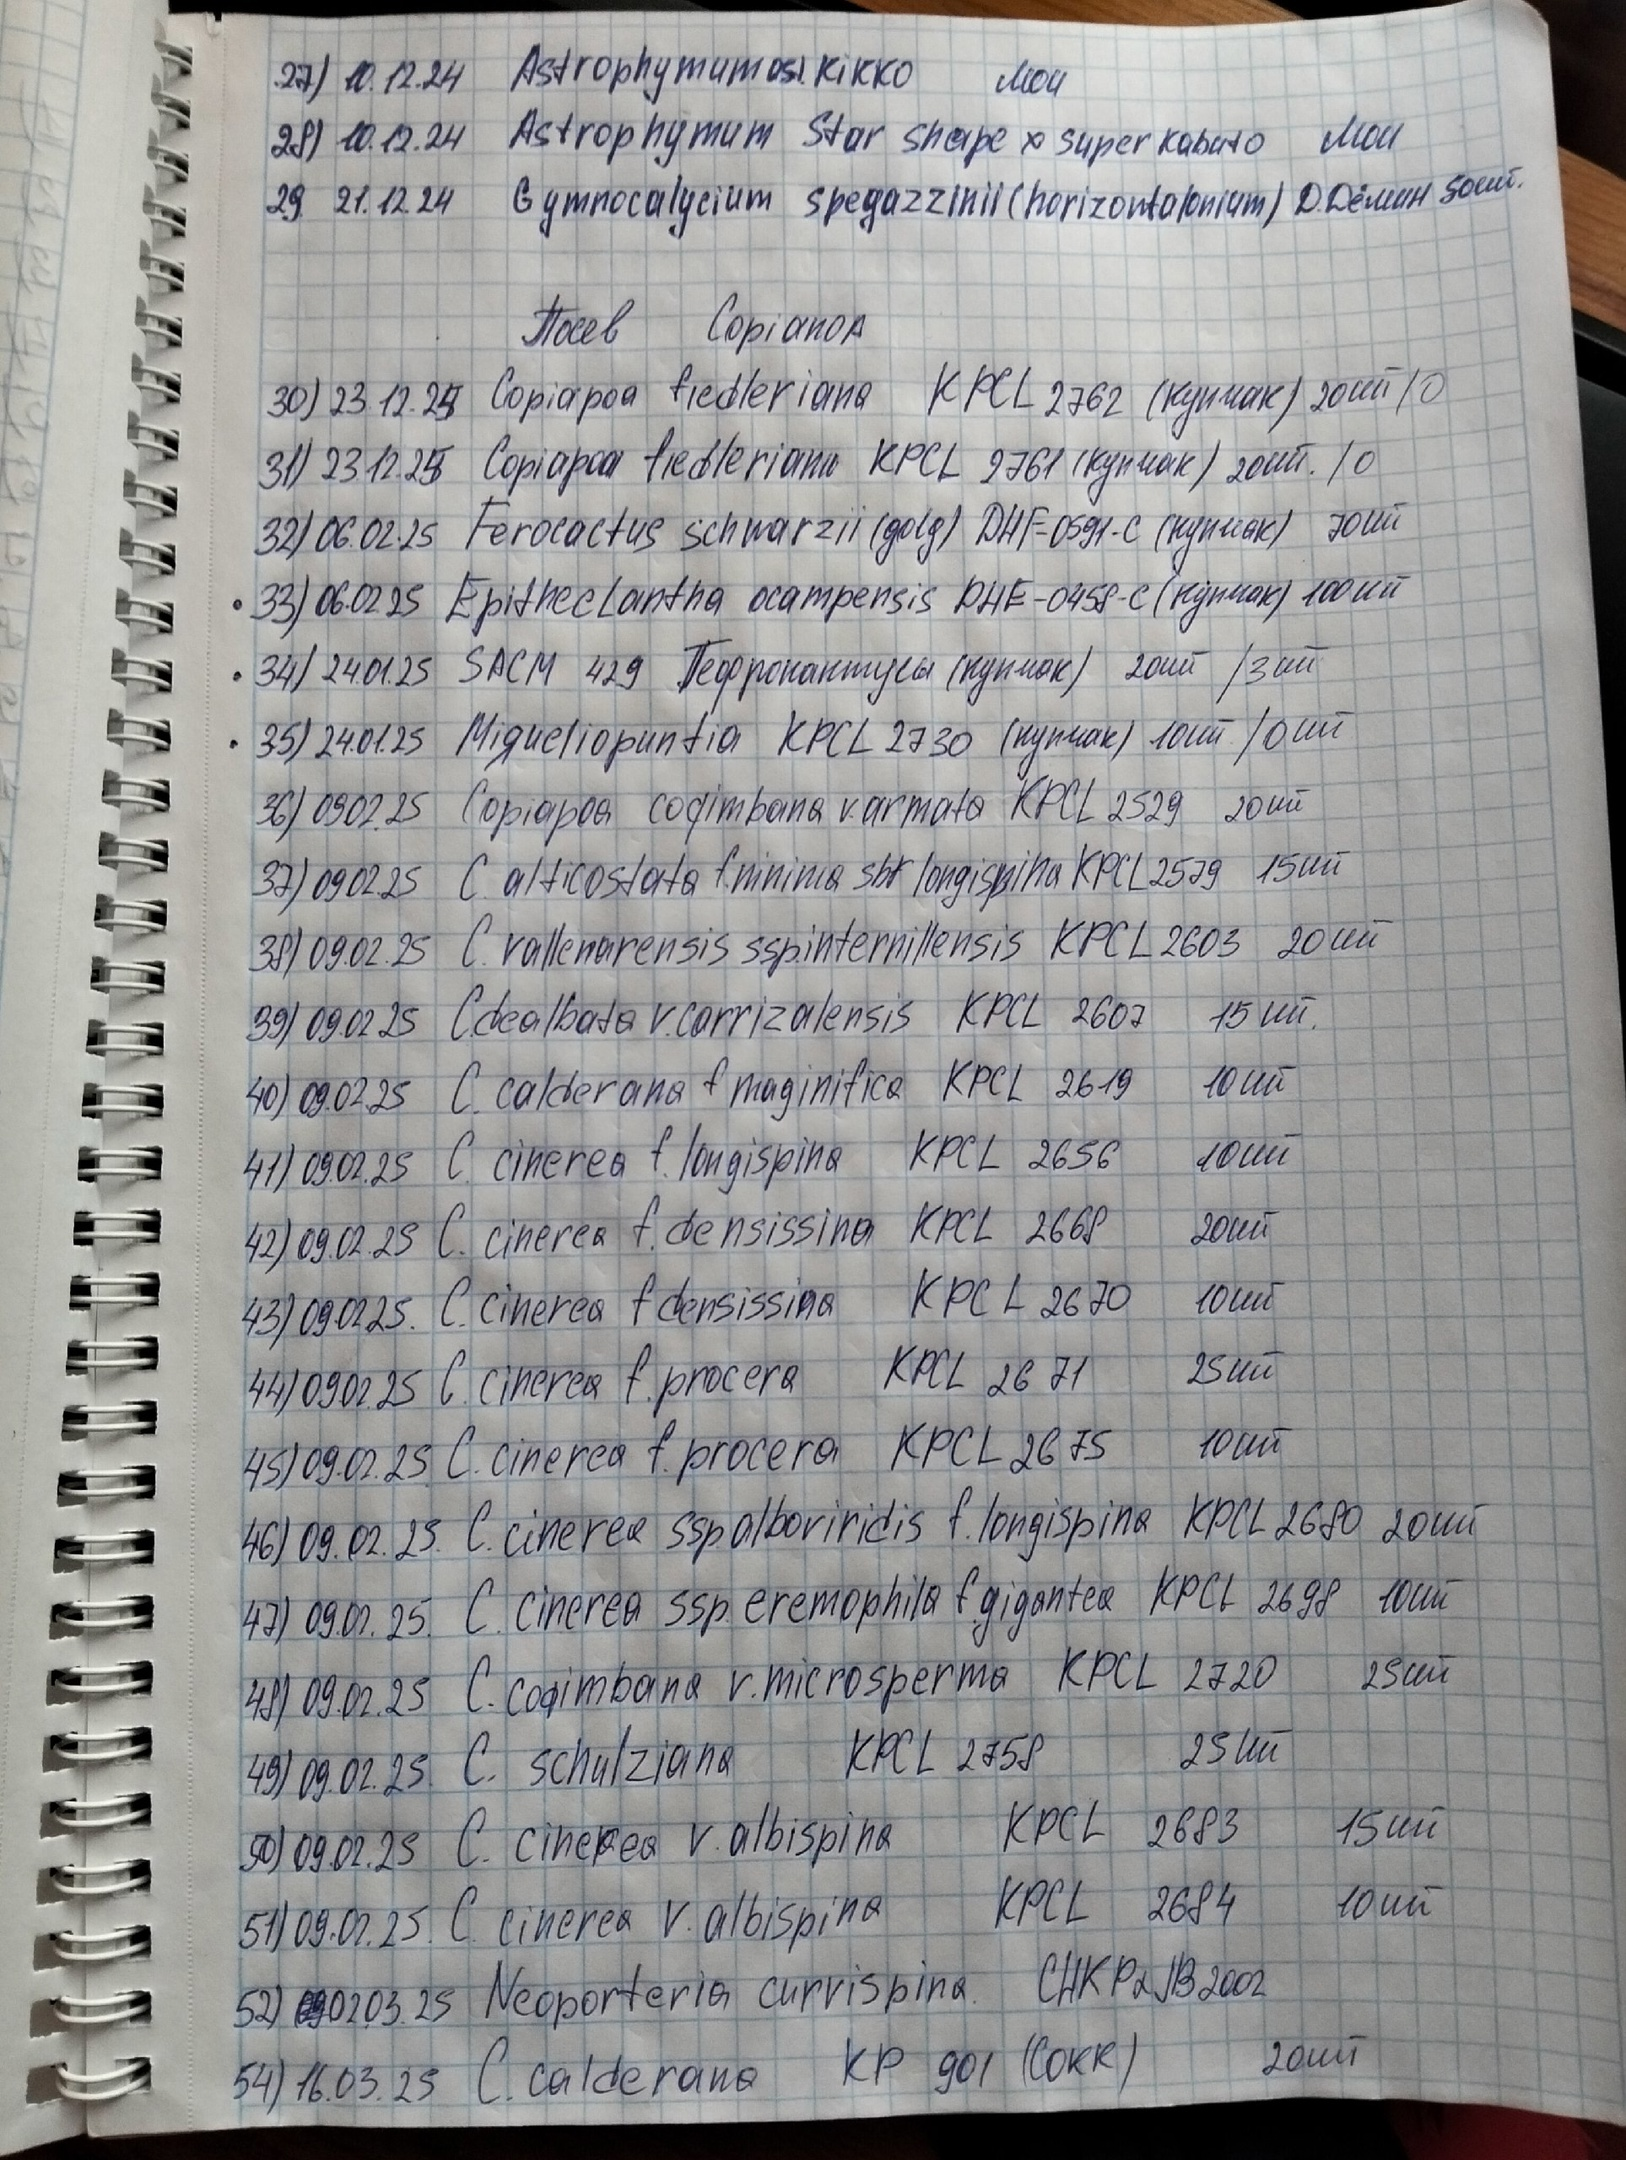 27) 10.12.24 Astrophymum as. Kikko Мои
28) 10.12.24 Astrophymum Star shape x super kabuto Мои
29 21.12.24 Gymnocalycium spegazzinii (horizontalonium) Д.Дёман 50шт.
Посев Copianoa
30) 23.12.24 Copiapoa fiedleriana KPCL 2762 (Купчак) 20шт /0
31) 23.12.24 Copiapoa fiedleriana KPCL 2761 (Купчак) 20шт. /0
32) 06.02.25 Ferocactus schwarzii (golg) DHF-0591-C (Купчак) 70шт
33) 06.02.25 Epitheclantha ocampensis DHE-0458-C (Купчак) 100шт
34) 24.01.25 SACM 429 Тефрокактусы (Купчак) 20шт /3шт
35) 24.01.25 Migueliopuntia KPCL 2730 (Купчак) 10шт /0шт
36) 09.02.25 Copiapoa coqimbana v.armata KPCL 2529 20шт
37) 09.02.25 C. alticostata f.minima sbf longispina KPCL 2579 15шт
38) 09.02.25 C. vallenarensis ssp.internillensis KPCL 2603 20шт
39) 09.02.25 C.dealbata v.carrizalensis KPCL 2607 15шт.
40) 09.02.25 C. calderana f maginifica KPCL 2619 10шт
41) 09.02.25 C. cinerea f. longispina KPCL 2656 10шт
42) 09.02.25 C. cinerea f. densissina KPCL 2668 20шт
43) 09.02.25. C. cinerea f densissina KPCL 2670 10шт
44) 09.02.25 C. cinerea f. procera KPCL 2671 25шт
45) 09.02.25. C. cinerea f. procera KPCL 2675 10шт
46) 09.02.25. C. cinerea ssp.alboviridis f. longispina KPCL 2680 20шт
47) 09.02.25. C. cinerea ssp. eremophila f.gigantea KPCL 2698 10шт
48) 09.02.25 C. coqimbana v.microsperma KPCL 2720 25шт
49) 09.02.25. C. schulziana KPCL 2758 25шт
50) 09.02.25 C. cinerea v. albispina KPCL 2683 15шт
51) 09.02.25. C. cinerea v. albispina KPCL 2684 10шт
52) 02.03.25 Neoporteria curvispina.
54) 16.03.25 C. calderana KP 901 (COKR) 20шт